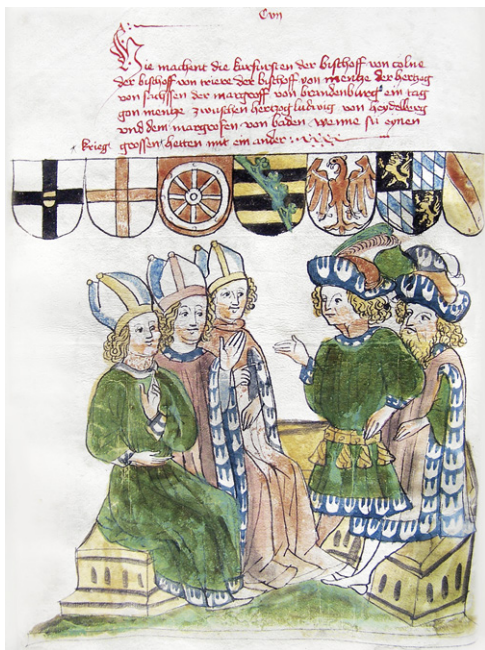 Cvii
Hie machent die kurfursten der bischoff von colne
der bischoff von triere der bischoff von mentze der hertzog
von sachssen der margroff von brandenburg ein tag
gon mentze zwischen hertzog ludwig von heydelberg
vnd dem margrofen von baden wenne sii eynen
krieg grossen hetten mit ein ander